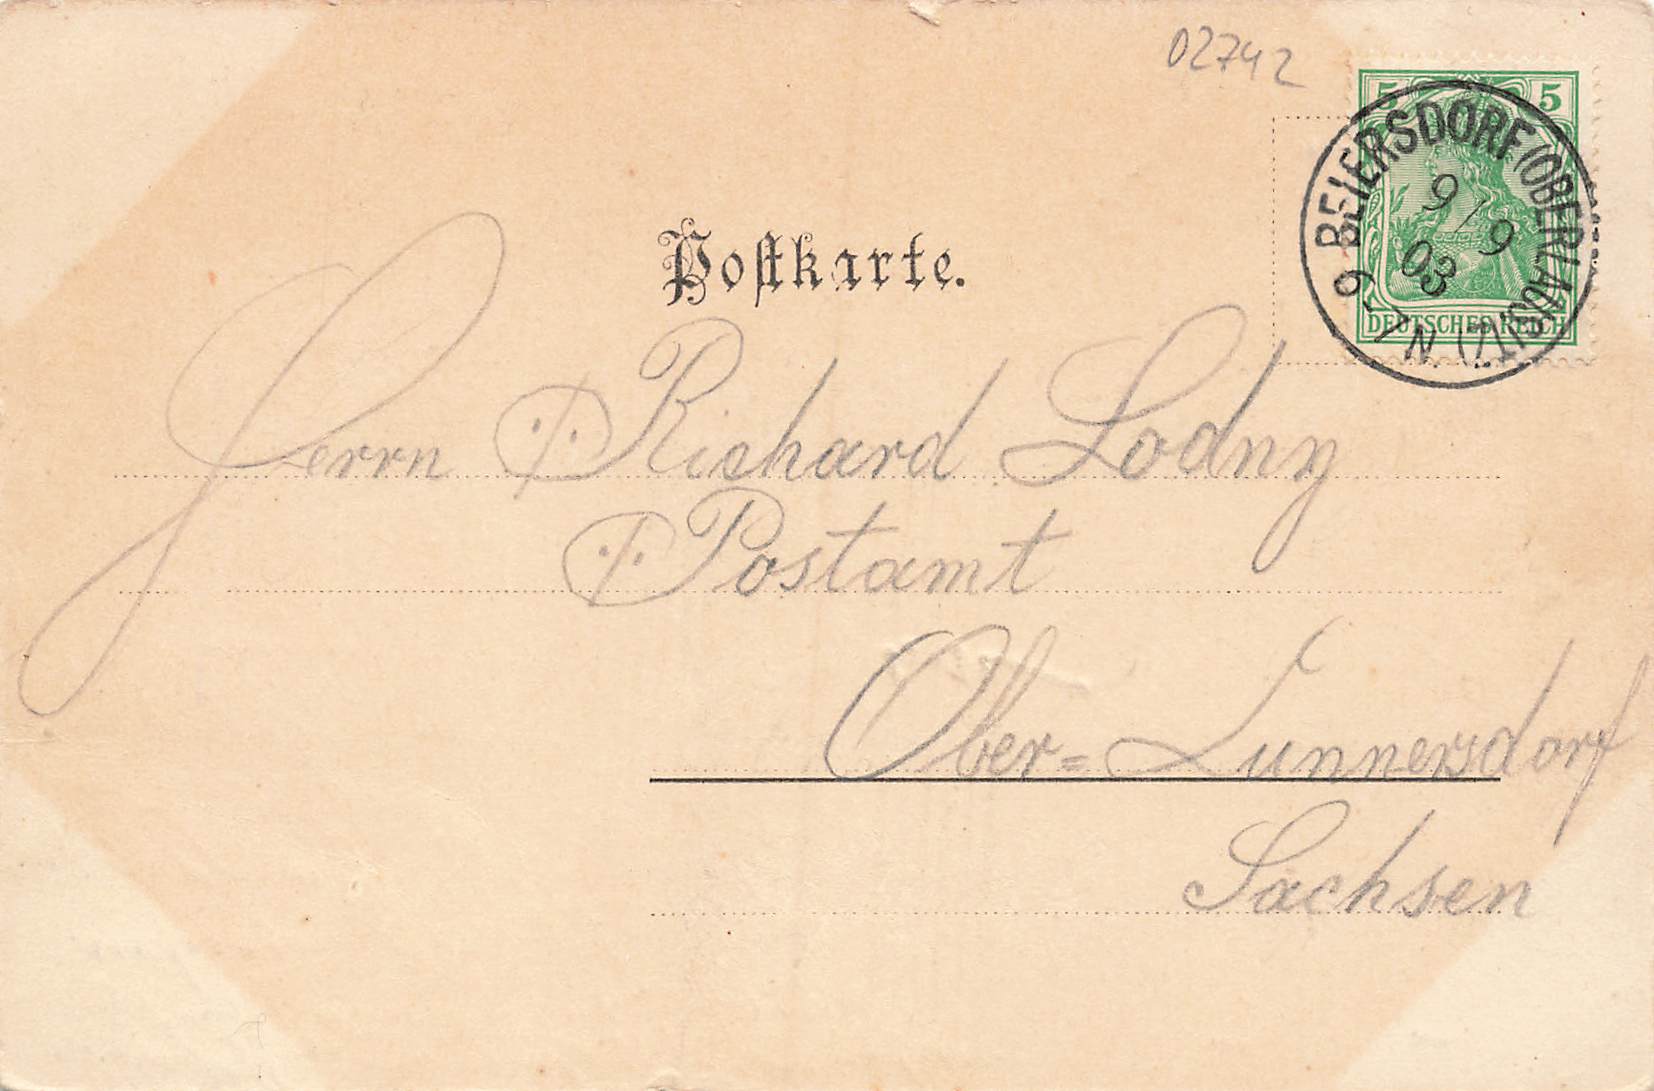 02742
5 5
DEUTSCHES REICH
BEIERSDORF (OBERLAUSITZ)
9/9
03
6-7 N
Postkarte.
Herrn Richard Lodny
Postamt
Ober=Cunnersdorf
Sachsen